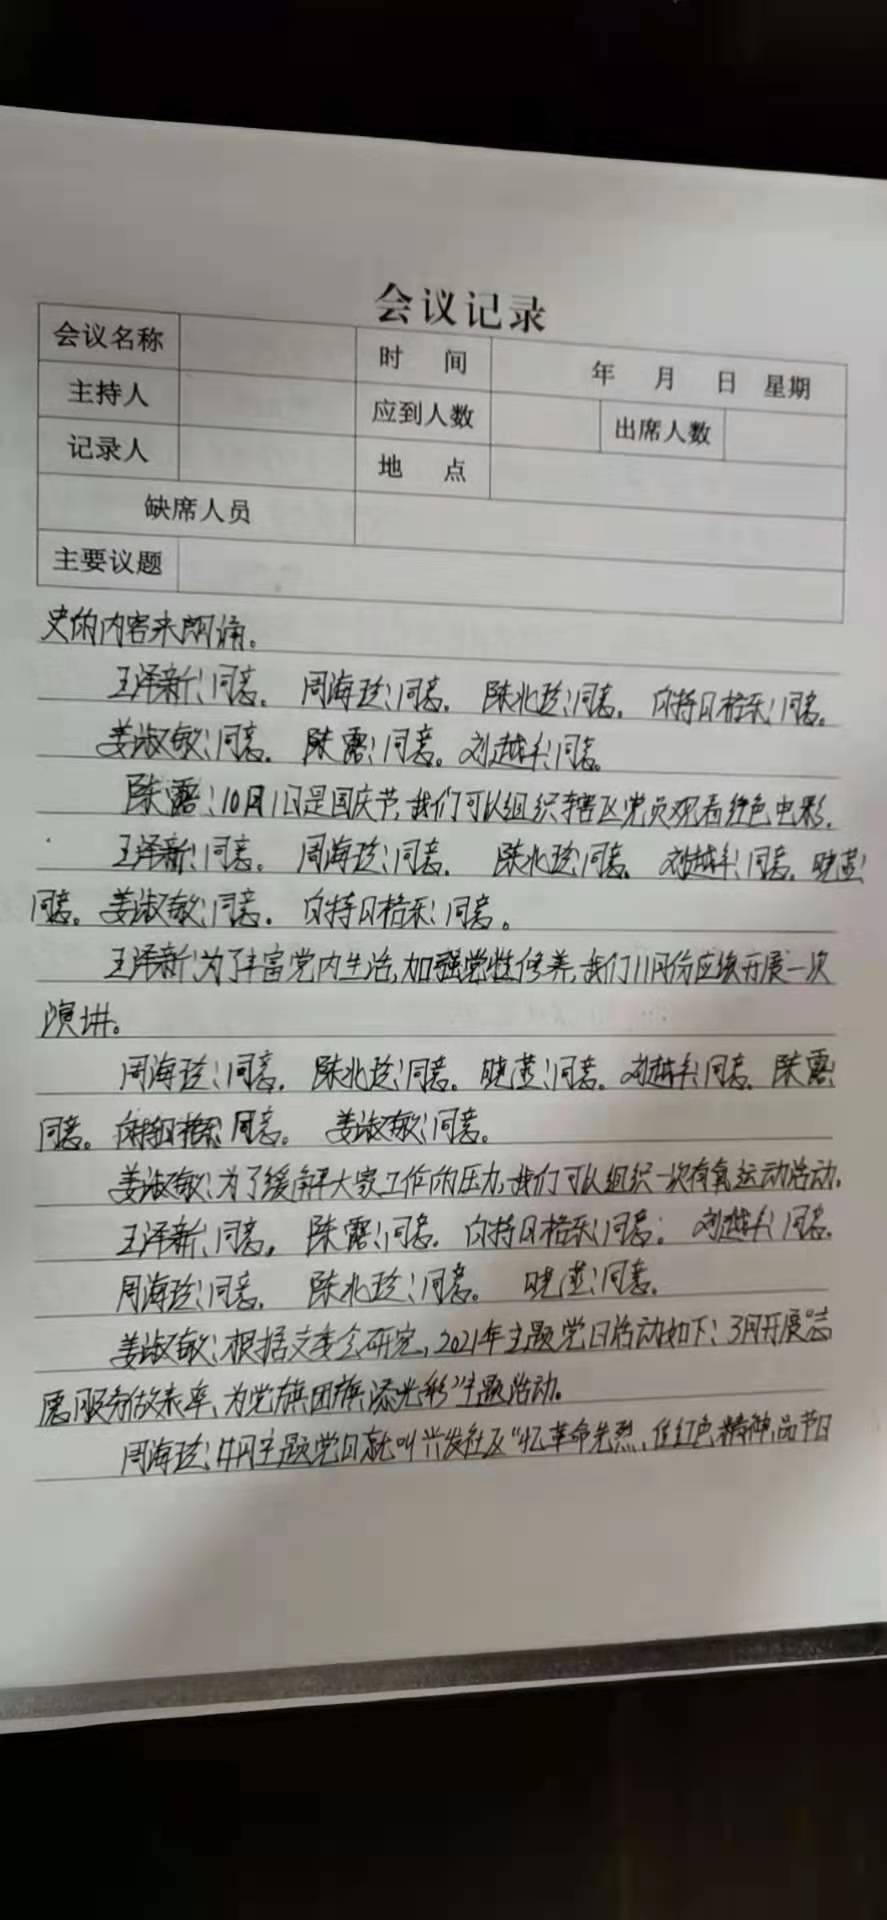 会议记录
会议名称 时 间 年 月 日 星期
主持人 应到人数 出席人数
记录人 地 点
缺席人员
主要议题
史的内容来朗诵。
王泽新：同意。 周海珍：同意。 陈兆珍：同意。 白特日格乐：同意。
姜淑敏：同意。 陈露：同意。 刘越丰：同意。
陈露：10月1日是国庆节，我们可以组织辖区党员观看红色电影。
王泽新：同意。 周海珍：同意。 陈兆珍：同意。 刘越丰：同意。 晓蓝：
同意。 姜淑敏：同意。 白特日格乐：同意。
王泽新：为了丰富党内生活，加强党性修养，我们11月份应该开展一次
演讲。
周海珍：同意。 陈兆珍：同意。 晓蓝：同意。 刘越丰：同意。 陈露：
同意。 白特日格乐：同意。 姜淑敏：同意。
姜淑敏：为了缓解大家工作的压力，我们可以组织一次有氧运动活动。
王泽新：同意。 陈露：同意。 白特日格乐：同意。 刘越丰：同意。
周海珍：同意。 陈兆珍：同意。 晓蓝：同意。
姜淑敏：根据支委会研究，2021年主题党日活动如下：3月开展“志
愿服务做表率、为党旗团旗添光彩”主题活动。
周海珍：4月主题党日就叫兴发社区“忆革命先烈、传红色精神，品节日